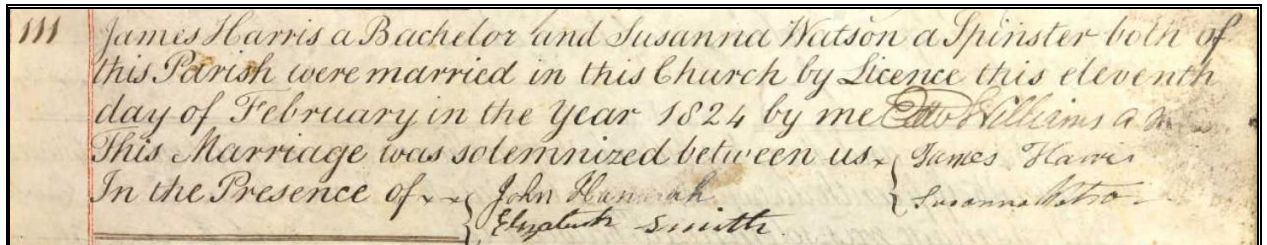 111 James Harris a Bachelor and Susanna Watson a Spinster both of
this Parish were married in this Church by Licence this eleventh
day of February in the Year 1824 by me Williams
This Marriage was solemnized between us James Harris
In the Presence of John Hannah Susanna Watson
Elizabeth Smith